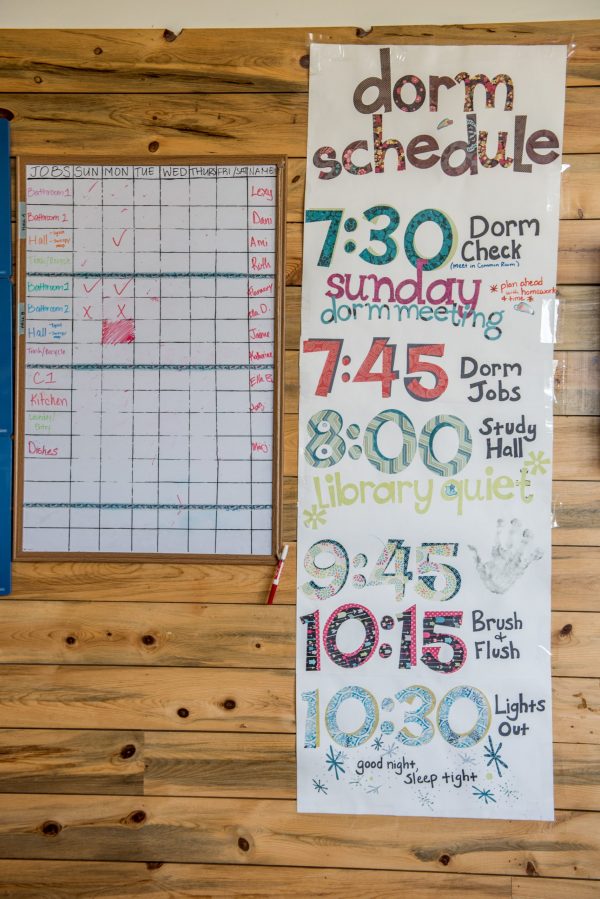 JOBS SUN MON TUE WED THURS FRI/SAT NAME
Bathroom 1 Lexy
Bathroom 2 Dani
Hall Ami
Trash/Recycle Ruth
Bathroom 1
Bathroom 2
Hall
Trash/Recycle Katharine
C1
Kitchen
Laundry/
Entry
Dishes
dorm
schedule
7:30 Dorm
Check
(meet in Common Room)
sunday
dorm meeting
* plan ahead
with homework
time *
7:45 Dorm
Jobs
8:00 Study
Hall
library quiet
9:45
10:15 Brush
+
Flush
10:30 Lights
Out
good night,
sleep tight